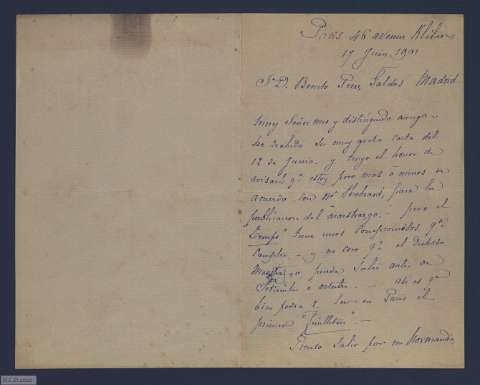 Paris 46 avenue Kléber
17 Juin 1901
Sr D. Benito Perez Galdos Madrid
Muy Señor mio y distinguido amigo
he recibido su muy grata carta del
12 de Junio y tengo el honor de
avisarle qe estoy poco mas o menos de
acuerdo con Mr Hebrard, para la
publicacion del Maestrazgo. - pero el
"Temps" tiene unos compromisos qe
cumplir. - y no creo qe el
pueda salir antes de
Setiembre u octubre. - Asi es qe
bien podra Vd. en Paris el
primero "feuilleton". -
Pronto salir por mi Normandia